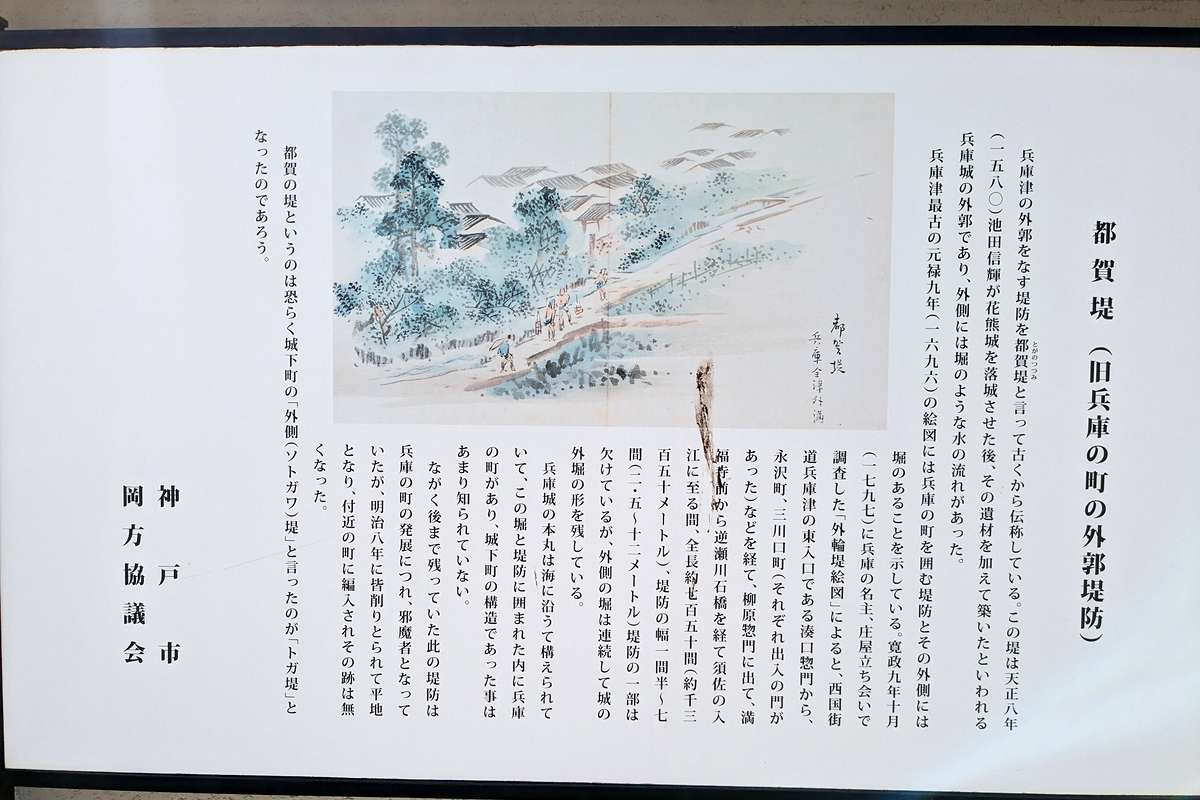 都賀堤（旧兵庫の町の外郭堤防）
兵庫津の外郭をなす堤防を都賀堤と言って古くから伝称している。この堤は天正八年
とがのつつみ
（一五八〇）池田信輝が花熊城を落城させた後、その遺材を加えて築いたといわれる
兵庫城の外郭であり、外側には堀のような水の流れがあった。
兵庫津最古の元禄九年（一六九六）の絵図には兵庫の町を囲む堤防とその外側には
堀のあることを示している。寛政九年十月
（一七九七）に兵庫の名主、庄屋立ち会いで
調査した「外輪堤絵図」によると、西国街
道兵庫津の東入口である湊口惣門から、
永沢町、三川口町（それぞれ出入の門が
あった）などを経て、柳原惣門に出て、満
福寺前から逆瀬川石橋を経て須佐の入
江に至る間、全長約七百五十間（約千三
百五十メートル）、堤防の幅一間半〜七
間（二・五〜十二メートル）堤防の一部は
欠けているが、外側の堀は連続して城の
外堀の形を残している。
兵庫城の本丸は海に沿うて構えられて
いて、この堀と堤防に囲まれた内に兵庫
の町があり、城下町の構造であった事は
あまり知られていない。
ながく後まで残っていた此の堤防は
兵庫の町の発展につれ、邪魔者となって
いたが、明治八年に皆削りとられて平地
となり、付近の町に編入されその跡は無
くなった。
都賀の堤というのは恐らく城下町の「外側（ソトガワ）堤」と言ったのが「トガ堤」と
なったのであろう。
神戸市
岡方協議会
都賀堤